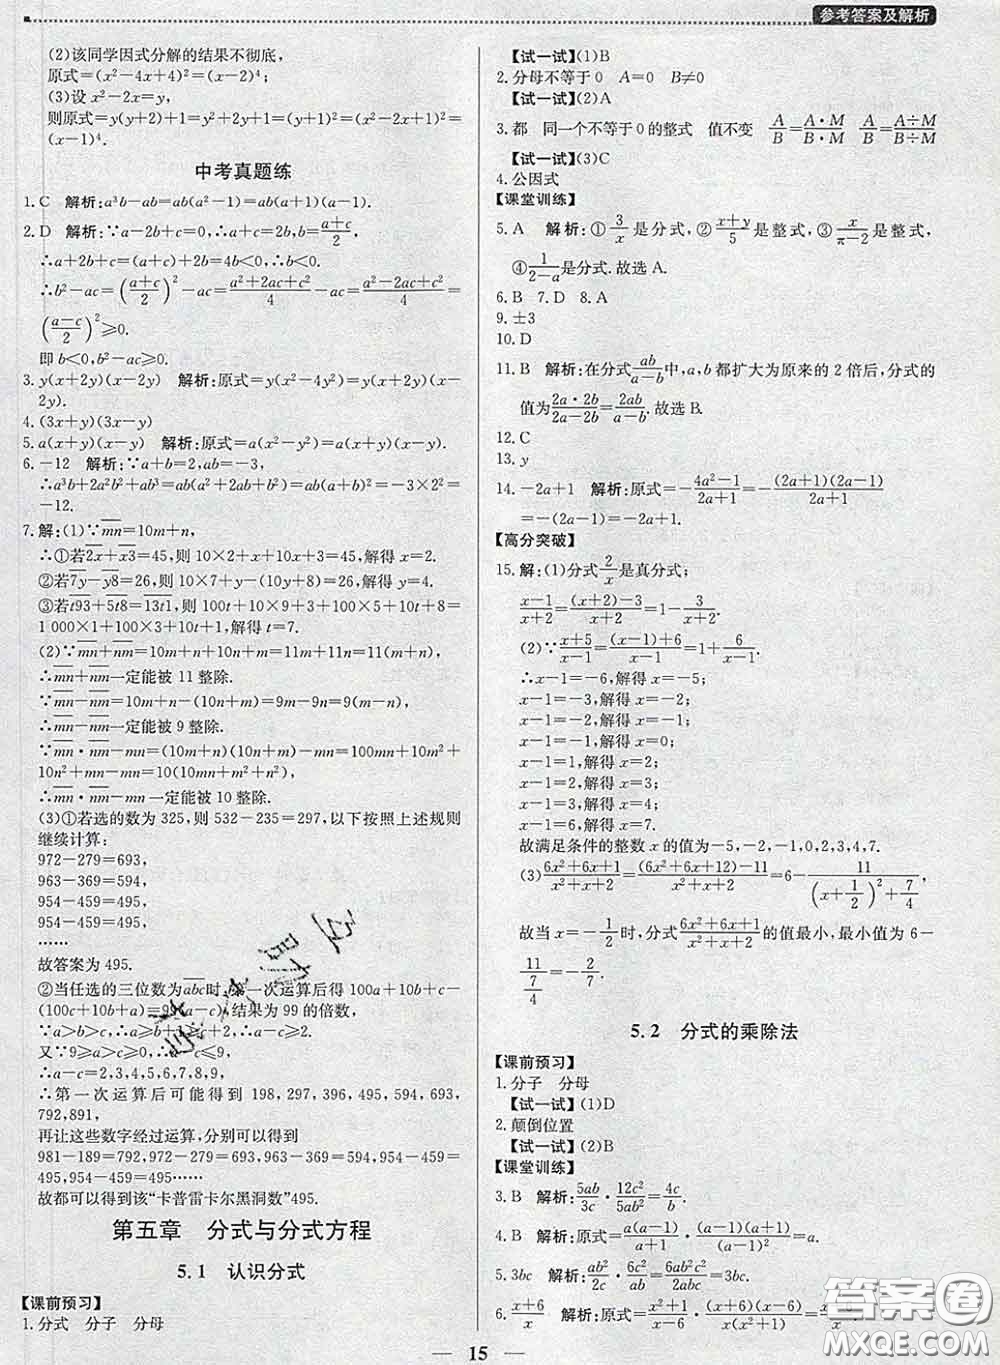 参考答案及解析
(2)该同学因式分解的结果不彻底,
原式=(x²-4x+4)²=(x-2)⁴;
(3)设 x²-2x=y,
则原式=y(y+2)+1=y²+2y+1=(y+1)²=(x²-2x+1)²=
(x-1)⁴.
中考真题练
1.C 解析:a³b-ab=ab(a²-1)=ab(a+1)(a-1).
2.D 解析:∵a-2b+c=0,∴a+c=2b,b=(a+c)/2,
∴a+2b+c=(a+c)+2b=4b<0,∴b<0.
∴b²-ac=((a+c)/2)²-ac=(a²+2ac+c²)/4-ac=(a²-2ac+c²)/4=
((a-c)/2)²≥0.
即 b<0,b²-ac≥0.
3.y(x+2y)(x-2y) 解析:原式=y(x²-4y²)=y(x+2y)(x-
2y).
4.(3x+y)(3x-y)
5.a(x+y)(x-y) 解析:原式=a(x²-y²)=a(x+y)(x-y).
6.-12 解析:∵a+b=2,ab=-3,
∴a³b+2a²b²+ab³=ab(a²+2ab+b²)=ab(a+b)²=-3×2²=
-12.
7.解:(1)∵mn=10m+n,
∴①若2x+x3=45,则 10×2+x+10x+3=45,解得 x=2.
②若7y-y8=26,则 10×7+y-(10y+8)=26,解得 y=4.
③若t93+5t8=13t1,则 100t+10×9+3+100×5+10t+8=
1 000×1+100×3+10t+1,解得 t=7.
(2)∵mn+nm=10m+n+10n+m=11m+11n=11(m+n),
∴mn+nm一定能被 11 整除.
∵mn-nm=10m+n-(10n+m)=9m-9n=9(m-n),
∴mn-nm一定能被 9 整除.
∵mn·nm-mn=(10m+n)(10n+m)-mn=100mn+10m²+
10n²+mn-mn=10(10mn+m²+n²),
∴mn·nm-mn一定能被 10 整除.
(3)①若选的数为 325,则 532-235=297,以下按照上述规则
继续计算:
972-279=693,
963-369=594,
954-459=495,
954-459=495,
……
故答案为 495.
②当任选的三位数为abc时,第一次运算后得 100a+10b+c-
(100c+10b+a)=99(a-c),结果为 99 的倍数,
∵a>b>c,∴a≥b+1≥c+2,∴a-c≥2.
又∵9≥a>c≥0,∴a-c≤9,
∴a-c=2,3,4,5,6,7,8,9,
∴第一次运算后可能得到 198,297,396,495,594,693,
792,891,
再让这些数字经过运算,分别可以得到
981-189=792,972-279=693,963-369=594,954-459=
495,954-459=495……
故都可以得到该“卡普雷卡尔黑洞数”495.
第五章 分式与分式方程
5.1 认识分式
【课前预习】
1.分式 分子 分母
【试一试】(1)B
2.分母不等于 0 A=0 B≠0
【试一试】(2)A
3.都 同一个不等于 0 的整式 值不变 A/B=(A·M)/(B·M) A/B=(A÷M)/(B÷M)
【试一试】(3)C
4.公因式
【课堂训练】
5.A 解析:①3/x是分式,②(x+y)/5是整式,③x/(π-2)是整式,
④1/(2-a)是分式.故选 A.
6.B 7.D 8.A
9.±3
10.D
11.B 解析:在分式ab/(a-b)中,a,b 都扩大为原来的 2 倍后,分式的
值为(2a·2b)/(2a-2b)=2ab/(a-b).故选 B.
12.C
13.y
14.-2a+1 解析:原式=-(4a²-1)/(2a+1)=-(2a+1)(2a-1)/(2a+1)
=-(2a-1)=-2a+1.
【高分突破】
15.解:(1)分式2/x是真分式;
(x-1)/(x+2)=((x+2)-3)/(x+2)=1-3/(x+2).
(2)∵(x+5)/(x-1)=((x-1)+6)/(x-1)=1+6/(x-1),
∴x-1=-6,解得 x=-5;
x-1=-3,解得 x=-2;
x-1=-2,解得 x=-1;
x-1=-1,解得 x=0;
x-1=1,解得 x=2;
x-1=2,解得 x=3;
x-1=3,解得 x=4;
x-1=6,解得 x=7.
故满足条件的整数 x 的值为-5,-2,-1,0,2,3,4,7.
(3)(6x²+6x+1)/(x²+x+2)=((6x²+6x+12)-11)/(x²+x+2)=6-11/((x+1/2)²+7/4)
故当 x=-1/2时,分式(6x²+6x+1)/(x²+x+2)的值最小,最小值为 6-
11/(7/4)=-2/7.
5.2 分式的乘除法
【课前预习】
1.分子 分母
【试一试】(1)D
2.颠倒位置
【试一试】(2)B
【课堂训练】
3.B 解析:5ab/3c·12c²/5ab²=4c/b.
4.B 解析:原式=a(a-1)/(a+1)²·(a-1)(a+1)/(a-1)²=a/(a+1).
5.3bc 解析:ab²/2c·6c²/ab=6ab²c²/2abc=3bc.
6.(x+6)/x 解析:原式=(x²+1)/(x-6)·(x+6)(x-6)/x(x²+1)=(x+6)/x.
15
答案圈
MXQE.COM